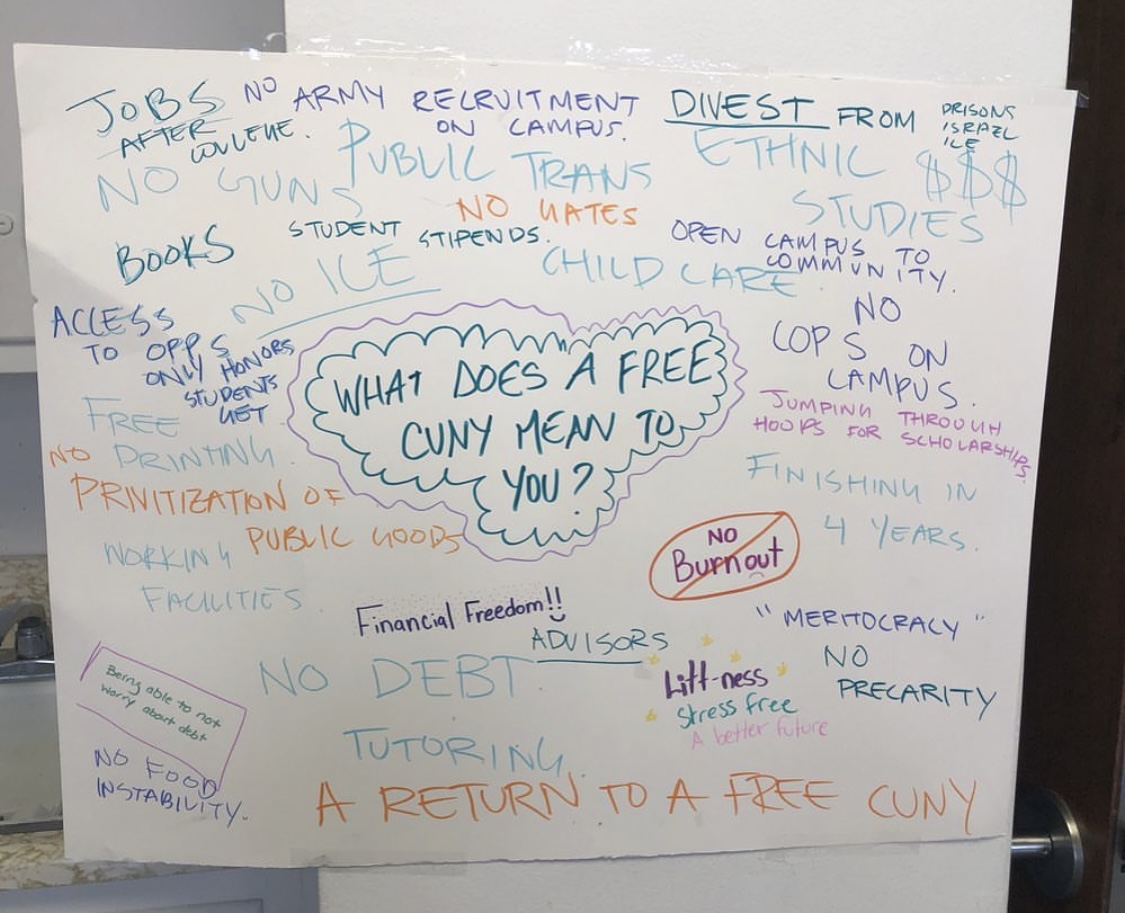 JOBS
AFTER
COLLEGE.
NO ARMY RECRUITMENT
ON CAMPUS.
DIVEST FROM
PRISONS
ISRAEL
ICE
$$$
NO GUNS
PUBLIC TRANS
ETHNIC
STUDIES
NO GATES
BOOKS
STUDENT STIPENDS.
OPEN CAMPUS TO
COMMUNITY.
NO ICE
CHILD CARE.
ACCESS
TO OPPS
ONLY HONORS
STUDENTS
GET
NO
COPS ON
CAMPUS.
WHAT DOES A FREE
CUNY MEAN TO
YOU?
FREE
PRINTING.
JUMPING THROUGH
HOOPS FOR SCHOLARSHIPS
NO
PRIVITIZATION OF
PUBLIC GOODS
FINISHING IN
4 YEARS.
WORKING
FACILITIES.
NO
Burnout
Financial Freedom!!
"MERITOCRACY"
ADVISORS
NO
PRECARITY
NO DEBT.
Litt-ness
Stress free
A better future
Being able to not
worry about debt
TUTORING.
NO FOOD
INSTABILITY.
A RETURN TO A FREE CUNY